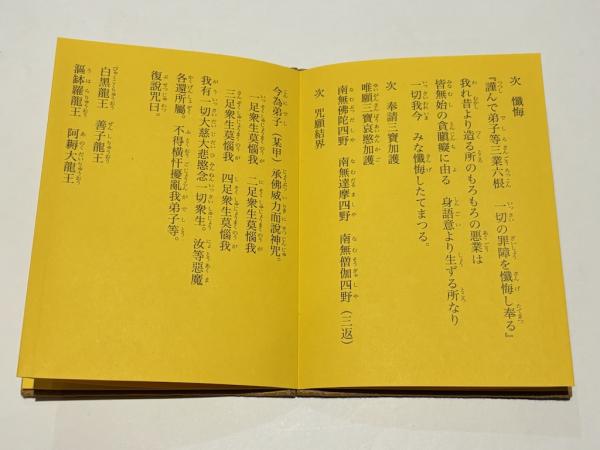 次　懺悔
『謹んで弟子等三業六根　一切の罪障を懺悔し奉る』
我れ昔より造る所のもろもろの悪業は
皆無始の貪瞋癡に由る　身語意より生ずる所なり
一切我今　みな懺悔したてまつる。
次　奉請三寶加護
唯願三寶哀愍加護
南無佛陀四野　南無達摩四野　南無僧伽四野（三返）
次　咒願結界
今為弟子（某甲）承佛威力而說神咒。
一足衆生莫惱我　二足衆生莫惱我
三足衆生莫惱我　四足衆生莫惱我
我有一切大慈大悲愍念一切衆生。汝等惡魔
各還所屬、不得橫忓擾亂我弟子等。
復說咒曰。
白黑龍王　善子龍王
漚鉢羅龍王　阿耨大龍王